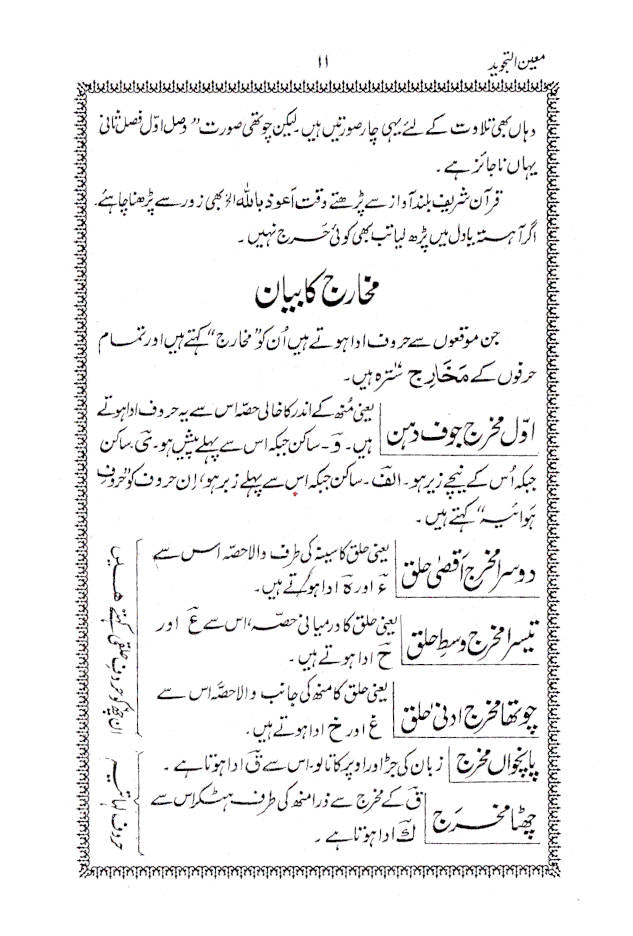 معین التجوید
۱۱
وہاں بھی تلاوت کے لئے یہی چار صورتیں ہیں۔ لیکن چوتھی صورت "وصل اوّل فصل ثانی
یہاں ناجائز ہے۔
قرآن شریف بلند آواز سے پڑھتے وقت اَعوذ باللہ الخ بھی زور سے پڑھنا چاہئے۔
اگر آہستہ یا دل میں پڑھ لیا تب بھی کوئی حَرج نہیں۔
مخارج کا بیان
جن موقعوں سے حروف ادا ہوتے ہیں اُن کو "مخارج" کہتے ہیں اور تمام
حرفوں کے مَخَارِج سَترہ ہیں۔
اوّل مخرج جوف دہن
یعنی مُنھ کے اندر کا خالی حصّہ اس سے یہ حروف ادا ہوتے
ہیں۔ وَ۔ ساکن جبکہ اس سے پہلے پیش ہو۔ یَ۔ ساکن
جبکہ اُس کے نیچے زیر ہو۔ الف۔ ساکن جبکہ اس سے پہلے زبر ہو، اِن حروف کو "حروف
ہَوائیہ" کہتے ہیں۔
دوسرا مخرج اَقصیٰ حلق
یعنی حلق کا سینہ کی طرف والا حصّہ اس سے
ءَ اور ہَ ادا ہوتے ہیں۔
تیسرا مخرج وسطِ حلق
یعنی حلق کا درمیانی حصّہ، اس سے عَ اور
حَ ادا ہوتے ہیں۔
چوتھا مخرج ادنیٰ حلق
یعنی حلق کا منھ کی جانب والا حصّہ اس سے
غ اور خ ادا ہوتے ہیں۔
ان چھ کو حروفِ حلقی کہتے ہیں
پانچواں مخرج
زبان کی جڑ اور اوپر کا تالو۔ اس سے قَ ادا ہوتا ہے۔
چھٹا مخرج
قَ کے مخرج سے ذرا منھ کی طرف ہٹ کر اس سے
كَ ادا ہوتا ہے۔
حروف لہاتیہ